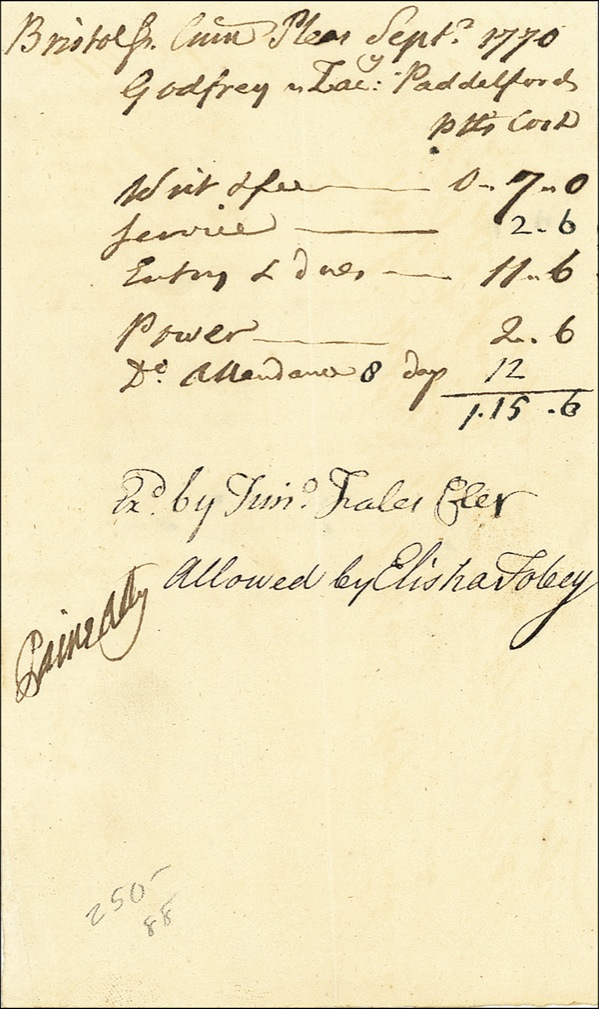 Bristol ss. Com Pleas Septr. 1770
Godfrey vs Zacy: Paddelford
plts Cost
Writ & fee — 0 " 7 " 0
Service — 2 . 6
Entry & dues — 11 " 6
Power — 2 . 6
Do. Attendance 8 days 12
1 . 15 . 6
Exd. by Timo. Fales Cler
Allowed by Elisha Tobey
Paine Atty
250-
88